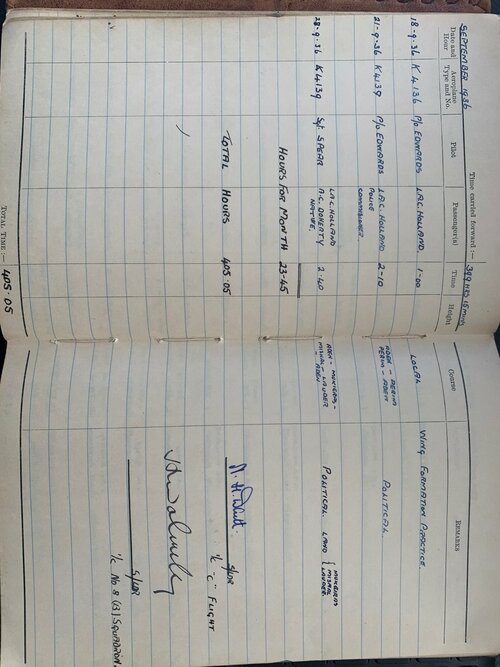 SEPTEMBER 1936
Time carried forward :— 399 HRS 15 MINS
Date and Hour Aeroplane Type and No. Pilot Passenger(s) Time Height Course REMARKS
18-9-36 K4136 P/O EDWARDS L.A.C. HOLLAND. 1-00 LOCAL WING FORMATION PRACTICE.
21-9-36 K4139 P/O EDWARDS L.A.C. HOLLAND 2-10 ADEN - PERIM POLITICAL
POLICE PERIM - ADEN
COMMISSIONER.
28-9-36 K4139 Sgt. SPEAR L.A.C. HOLLAND 2.40 ADEN - MUKEIRAS - POLITICAL LAND MUKEIRAS
A.C. DOHERTY LAUDER MISMIR
NATIVE. ADEN LAUDER
HOURS FOR MONTH 23-45
TOTAL HOURS 405.05
S/LDR
i/c "C" FLIGHT
S/LDR
i/c No 8 (B) SQUADRON.
TOTAL TIME :— 405.05